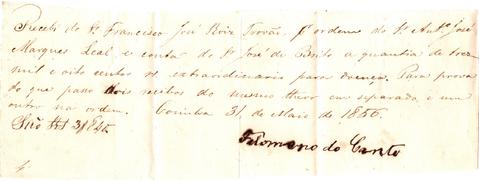 Recebi do Sr. Francisco José Roiz Trovão, p. ordem do Sr. Antº. José
Marques Leal e conta do Sr. José de Brito a quantia de tres
mil e oito centos rs. extraordinaria para doença. Para prova
do que passo dois recibos do mesmo theor em separado e um
outro na ordem. Coimbra 31, de Maio de 1856.
São
Filomeno do Canto